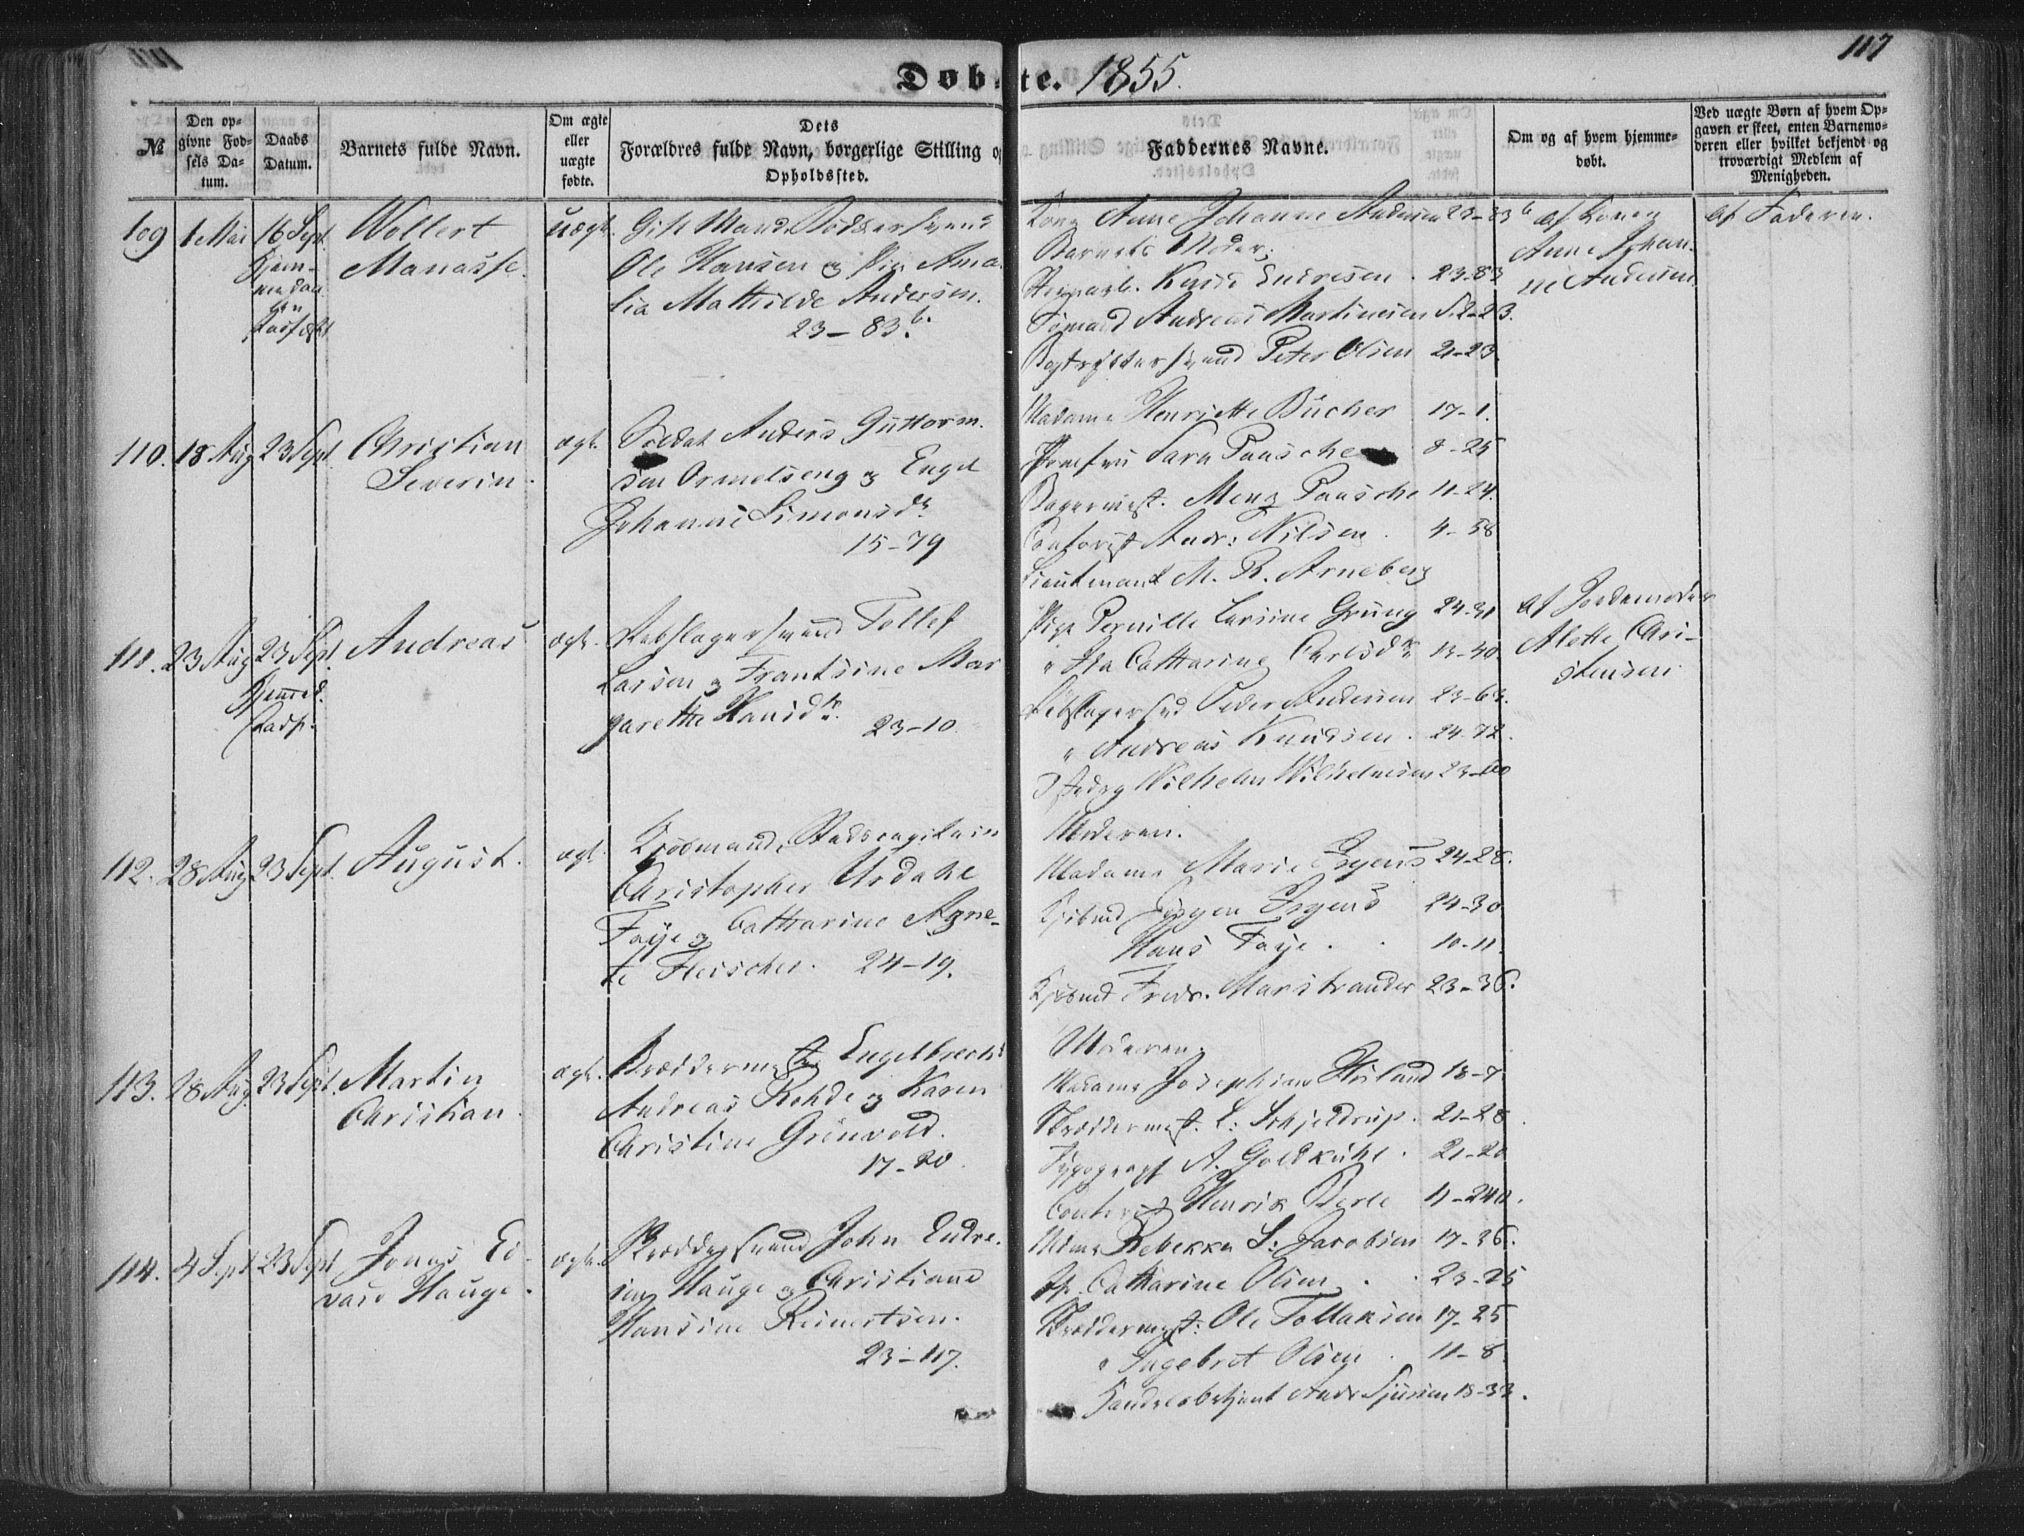 117
Døbte. 1855.
№
Den opgivne Fødsels Datum.
Daabs Datum.
Barnets fulde Navn.
Om ægte eller uægte fødte.
Dets Forældres fulde Navn, borgerlige Stilling og Opholdssted.
Faddernes Navne.
Om og af hvem hjemmedøbt.
Ved uægte Børn af hvem Opgaven er skeet, enten Barnemoderen eller hvilket bekjendt og troværdigt Medlem af Menigheden.
109 1 Mai 16 Sept.
Wollert
Manasse.
uægt.
Gift Mand,
Ole Hansen og Pige Ama-
lia Mathilde Andersen.
23–83 b.
Kone Anne Johanne Andersen 23–83 b
Barnets Moder.
Knud Endresen . 23–83
Sømand Andreas Martinesen S. 2–23.
Peter Olsen 21–23.
af Konen
Anne Johan-
ne Andersen
af Faderen.
110. 18 Aug 23 Sept.
Christian
Severin.
ægt.
Soldat Anders Guttorm-
sen Ormelseng og Engel
Johanne Simonsdr
15–79
Madame Henriette Bücher 17–1.
Jomfru Sara Paasche 8–25
Bagermest. Menz Paasche 11–24.
Contorist Andr: Nilsen . 4–58
Lieutenant M. R. Arneberg
111. 23 Aug 23 Sept.
Hjemmed.
Stadf.
Andreas
ægt.
Rebslagersvend Tollef
Larsen og Frantsine Mar
garethe Hansdtr.
23–10.
Pige Pernille Larsine Grung 24–31
" Ida Catharine Carlsdtr 13–40.
Rebslagersvd Peder Andersen 23–63.
" Andreas Knudsen . 24–72.
Wilhelm Wilhelmsen 23–60
af Jordemoder
Alette Chri-
stensen
112. 28 Aug 23 Sept.
August.
ægt.
Kjøbmand, Stadscapitain
Christopher Urdahl
Faye og Catharine Agne-
te Fleischer. 24–19.
Moderen.
Madame Marie Irgens 24–28.
Kjøbmd Jørgen Irgens 24–30.
Hans Faye . . 10–11.
Kjøbmd Fredr. Marstrander 23–36.
113. 28 Aug. 23 Sept.
Martin
Christian.
ægt.
Skræddermester Engelbrecht
Andreas Rohde og Karen
Christine Grønvold.
17–20.
Moderen.
Madame Josephine Høiland 18–7
Skræddermest. L: Schjeldrup. 21–28.
Typograph A. Goldkuhl . 21–20
Contorist Henrik Berle 11–240.
114. 4 Sept 23 Sept
Jonas Ed-
vard Hauge.
ægt.
Skræddersvend John Endre-
sen Hauge og Christiane
Hansine Reinertsen.
23–117.
Mdme Rebekka S: Jacobsen 17–36.
Pg. Catharine Olsen . . 23–25
Skræddermest: Ole Tollaksen 17–25
" Ingebret Olsen . 11–8.
Handelsbetjent Andr Sjursen 18–33.